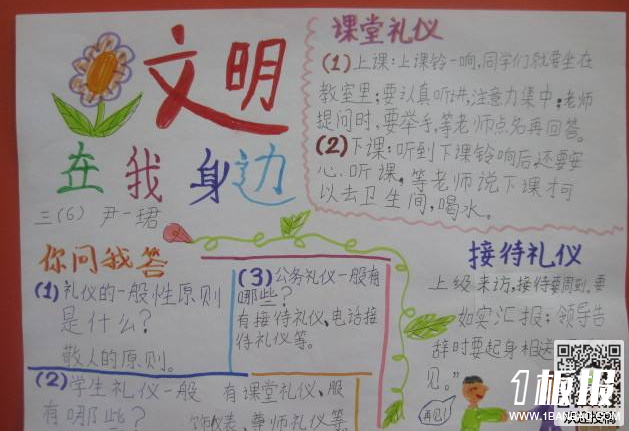 文明
在我身边
三(6) 尹一珺
课堂礼仪
(1)上课:上课铃一响,同学们就要坐在
教室里;要认真听讲,注意力集中;老师
提问时,要举手,等老师点名再回答。
(2)下课:听到下课铃响后,还要安
心听课,等老师说下课才可
以去卫生间,喝水。
你问我答
(1)礼仪的一般性原则
是什么?
敬人的原则。
(2)学生礼仪一般
有哪些?
有课堂礼仪、服
饰仪表、尊师礼仪等
(3)公务礼仪一般有
哪些?
有接待礼仪、电话接
待礼仪等。
接待礼仪
上级来访,接待要周到。要
如实汇报;领导告
辞时要起身相送
见。”
再见!
1板报
WWW.1BANBAO.COM
欢迎投稿